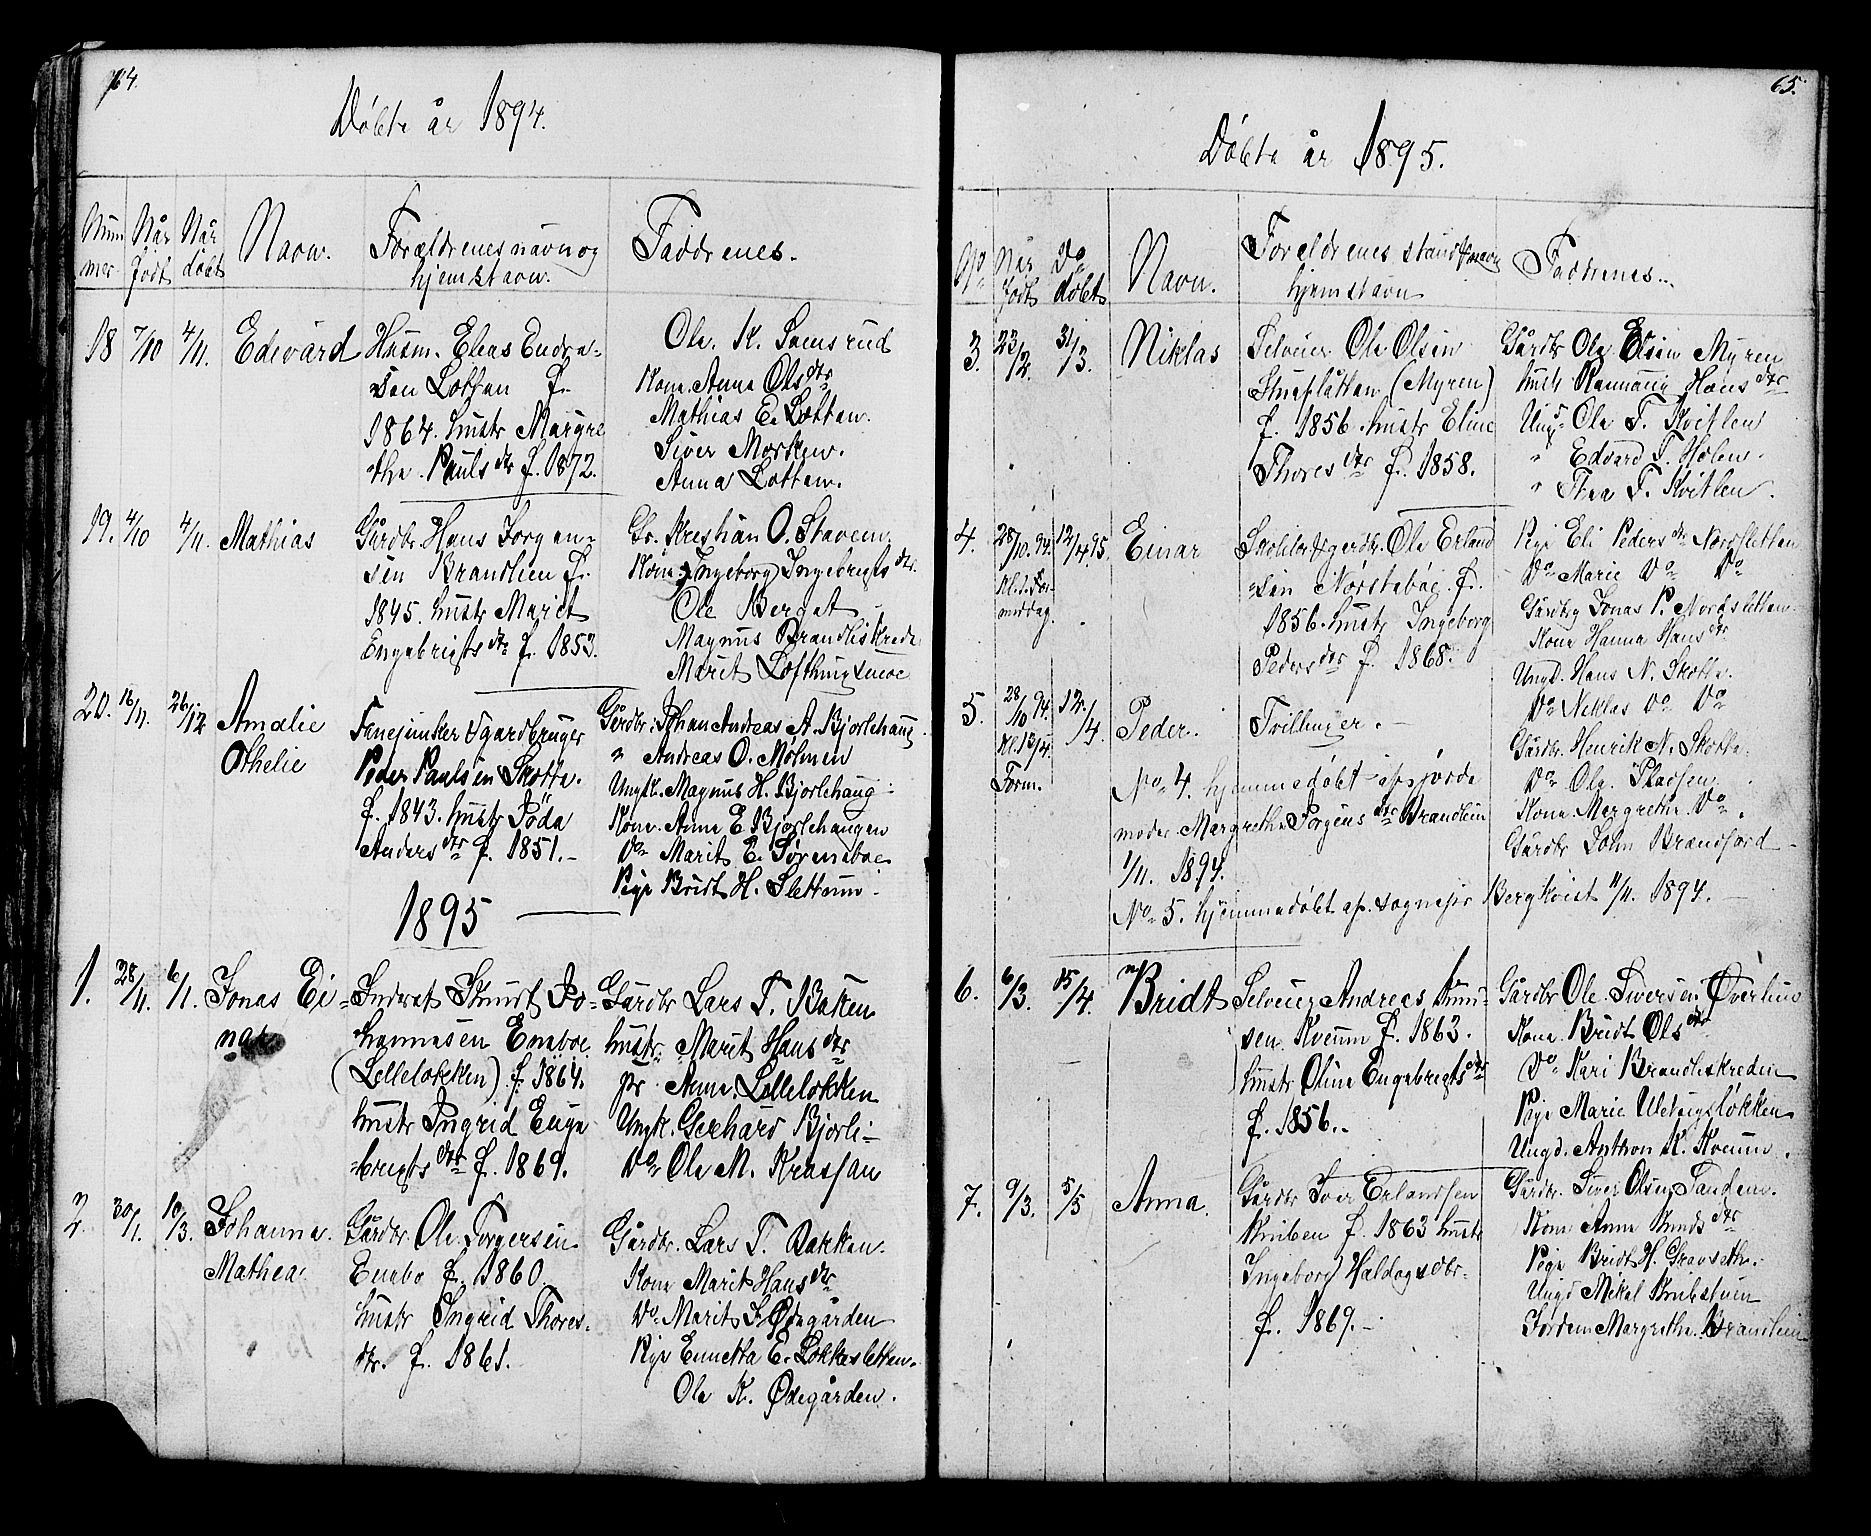 64.
Döbte år 1894.
Num
mer
Når
födt
Når
döbt
Navn.
Forældrenes navn og
hjemstavn.
Faddrenes.
18 7/10 4/11. Edevard
Husm. Elias Endre-
sen Lotten f.
1864. hustr Margre
the Pauls dtr f. 1872.
Ole. K. Lomsrud
Kone. Anna Ols dtr
Mathias E. Lotten.
Siver Morken.
Anna Lotten.
19. 4/10 4/11. Mathias
Gårdbr. Hans Jorgen-
sen Brandlien f.
1845. hustr Marit
Engebrigts dtr f. 1853.
Gr. Kreshan O. Staven.
Kone Ingeborg Ingebregts dtr.
Ole Berget
Magnus Brandliskrede
Marit Lofthusmoe
20. 16/11. 26/12 Amalie
Othelie
Fanejunker & gardbruger
Peder Paulsen Skotte.
f. 1843. hustr Jøda
Anders dtr f. 1851.-
Gårdbr. Johan Andreas A. Bjorlehaug.
" Andreas O. Mølmen
Ungk. Magnus H. Bjorlehaug
Kone. Anne E. Bjorlehaugen
Do Marit E. Sørensboe
Pige Bridt H. Slettum.
1895
1. 28/11. 6/1. Jonas Ei-
nar
Inderst Knudt Jo-
hannesen Eneboe
(Lellelokken) f. 1864.
hustr Ingrid Enge
-bregts dtr f. 1869.
Gårdbr Lars T. Baken
hustr. Marit Hans dtr
pr Anne Lellelokken
Ungk. Gerhard Bjorli-
Do Ole M. Krassan
2. 30/1. 10/3. Johanne.
Mathea
Gårdbr. Ole Torgersen
Enebo f. 1860.
hustr Ingrid Thores-
dtr. f. 1861.
Gårdbr. Lars T. Bakken.
Kone Marit Hans dtr
Do. Marit S. Ødegården
Pige Ennetta E. Løkkesletten.
Ole K. Ødegården.
65.
Döbte år 1895.
No
Når
födt
Do
döbt
Navn.
Foreldrenes stand & navn
hjemstavn
Faddrenes..
3. 23/2. 31/3. Niklas
Selveier Ole Olsen
Stueflåtten (Myren)
f. 1856. hustr Eline
Thores dtr f. 1858.
Gårdbr Ole Olsen Myren
hustr Rannaug Hans dtr
Ung. Ole T. Kvitlen
" Edvard T. Holen.
" Thea T. Kvitlen.
4. 28/10. 94. 12/4 95. Einar
Kl. 1. For-
middag.
Skolelr & gardbr. Ole Erland
-sen Nørstebøe f.
1856. hustr Ingeborg
Peders dtr f. 1868.
Pige Eli Peders dtr Nordsletten
Do Marie Do Do
Gårdbrg Jonas P. Nordsletten.
Kone Hanna Hans dtr
Ungd. Hans N. Skotte.
Do Neklas Do Do
5. 28/10 94. 12/4. Peder. Tvillinger. -
Form.
Gårdbr. Henrik N. Skotte.
Do Ole Pladsen
Kone Margrethe. Do.
Gårdbr John Brandford -
No 4. hjemmedöbt af jorde
moder Margrethe Jorgens dtr Brandlien
1/11. 1894.
No 5. hjemmedöbt af. sognepr Bergkvist 11/11. 1894. -
6. 6/3. 15/4. Bridt
Selveier Andreas Knud-
sen Kveum f. 1863.
hustr Oline Engebregts dtr
f. 1856.-
Gårdbr Ole Siversen Øverlien
Kone Bridt Ols dtr
Do Kari Brandliskreden
Pige Marie Uletvigsløkken
Ungd. Anthon K. Kveum.
7. 9/3. 5/5 Anna.
Gårdbr Iver Erlandsen
Kniben f. 1863 hustr
Ingeborg Haldogsdtr-
f. 1869.-
Gårdbr. Siver Olsen Sanden.
Kone Anne Knuds dtr
Pige Bridt H. Gravseth.
Ungd Mekal Knibstuen
Jordem Margrethe. Brandlien